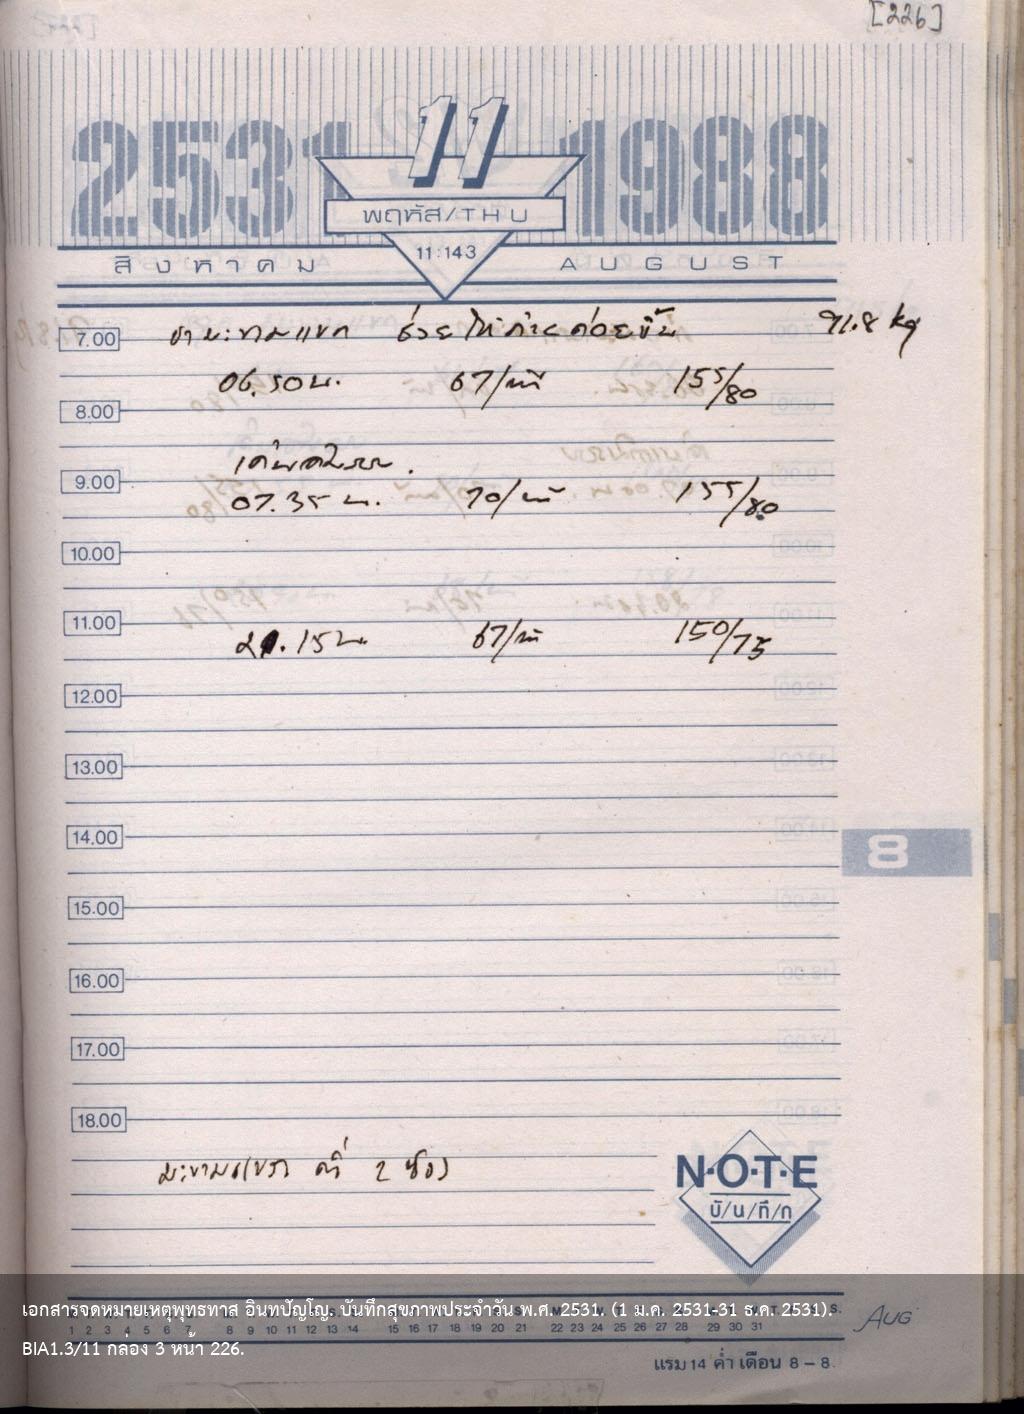 [226]
2531 11 1988
พฤหัส/THU
11:143
สิงหาคม AUGUST
7.00 ชามะขามแขก ช่วยให้ถ่าย ค่อยขึ้น 91.8 kg
06.50 น. 67/นาที 155/80
8.00
9.00
07.35 น. 70/นาที 155/80
10.00
11.00
21.15 น. 67/นาที 150/75
12.00
13.00
14.00
8
15.00
16.00
17.00
18.00
มะขามแขก 2 ซอง
N·O·T·E
บั/น/ทึ/ก
เอกสารจดหมายเหตุพุทธทาส อินทปัญโญ. บันทึกสุขภาพประจำวัน พ.ศ. 2531. (1 ม.ค. 2531-31 ธ.ค. 2531).
1 2 3 4 5 6 7 8 9 10 11 12 13 14 15 16 17 18 19 20 21 22 23 24 25 26 27 28 29 30 31
AUG
BIA1.3/11 กล่อง 3 หน้า 226.
แรม 14 ค่ำ เดือน 8 – 8.